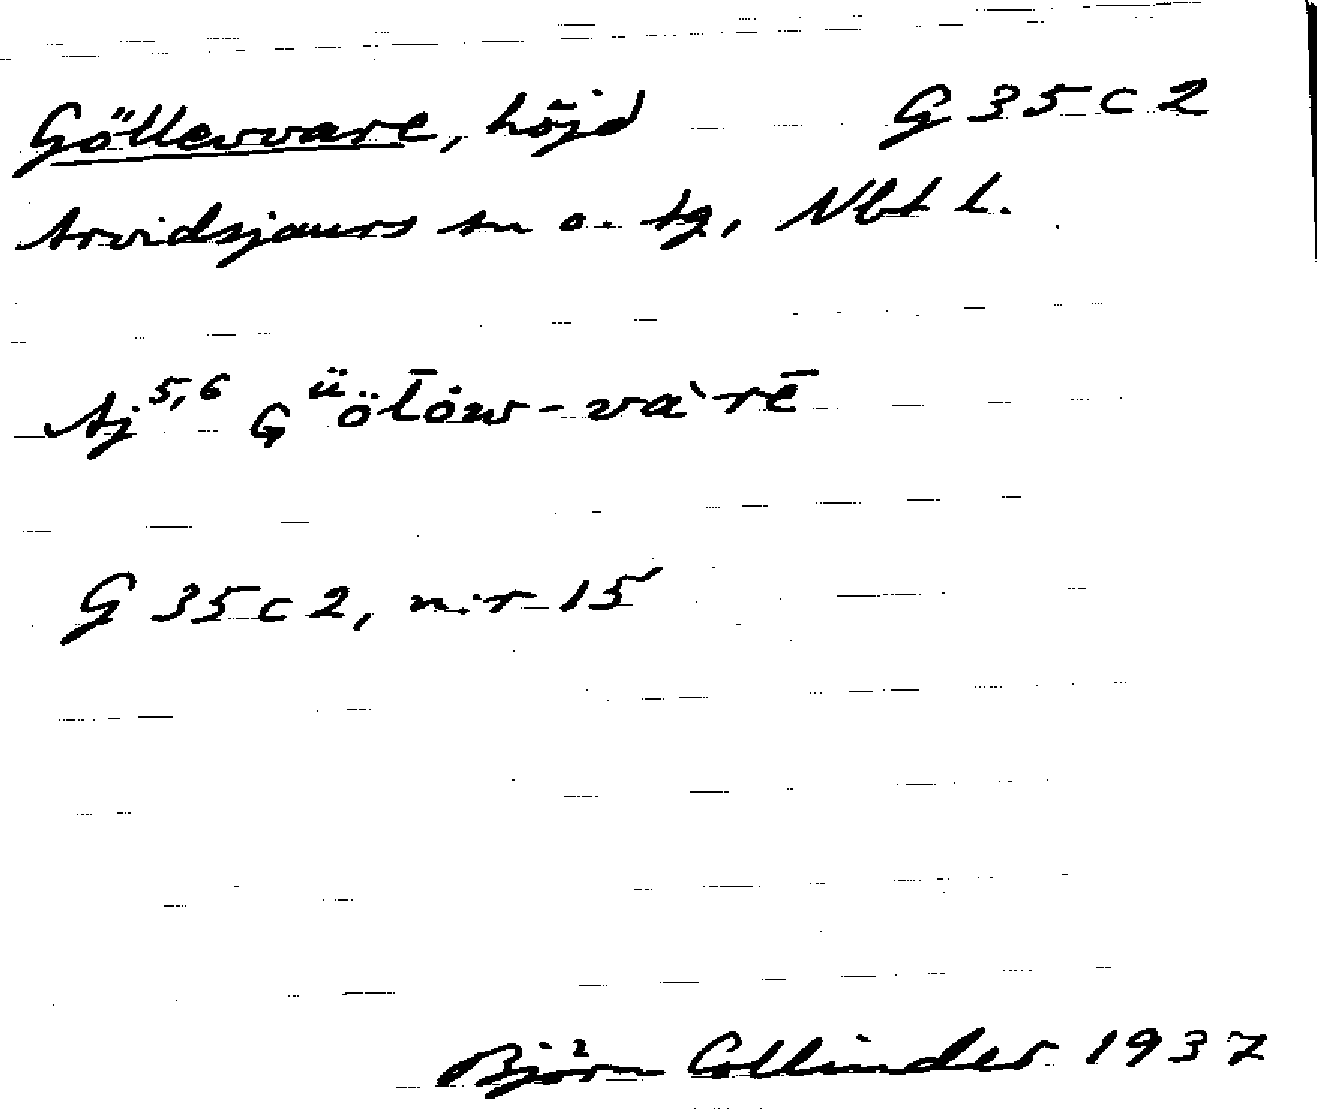 Göllevvare, höjd G 35 c 2
Arvidsjaurs sn o. tg, Nbt l.
Aj 5,6 G ü öl̄ȯw-va`rē
G 35 c 2, n:r 15
Björn Collinder 1937